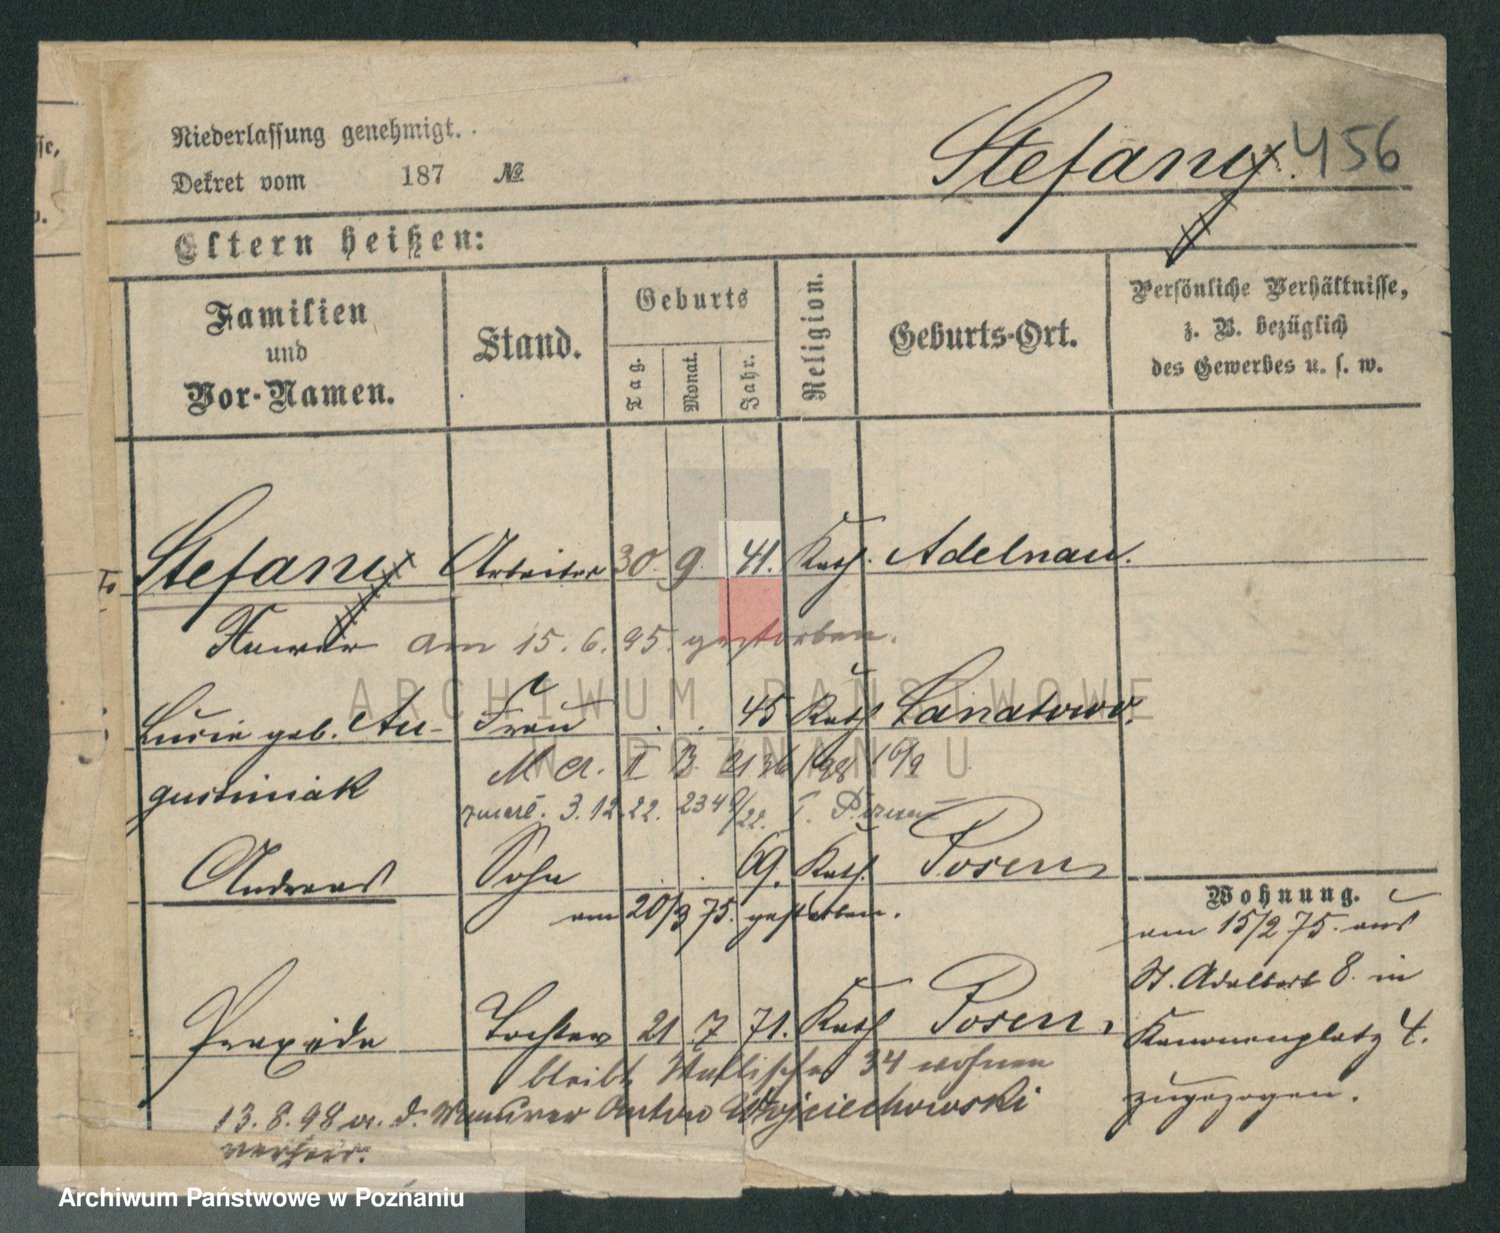 Niederlassung genehmigt.
Dekret vom 187 №
Stefany. 456
Eltern heißen:
Familien
und
Vor-Namen.
Stand.
Geburts
Tag.
Monat.
Jahr.
Religion.
Geburts-Ort.
Persönliche Verhältnisse,
z. B. bezüglich
des Gewerbes u. s. w.
Stefany Arbeiter 30. 9. 41. Kath. Adelnau.
am 15. 6. 95. gestorben.
Lucie geb. Au- Frau . . 45 Kath
gustiniak
zmarł. 3. 12. 22.
Andreas Sohn . . 69. Kath. Posen
am 20/3 75. gestorben.
Praxeda Tochter 21 7 71. Kath Posen.
bleibt Wallischei 34 wohnen
13.8.98 a. d. Maurer Anton Wojciechowski
verheir.
Wohnung.
am 15/2 75. aus
St. Adalbert 8. in
Kanonenplatz 4.
zugezogen.
ARCHIWUM PAŃSTWOWE
W POZNANIU
Archiwum Państwowe w Poznaniu